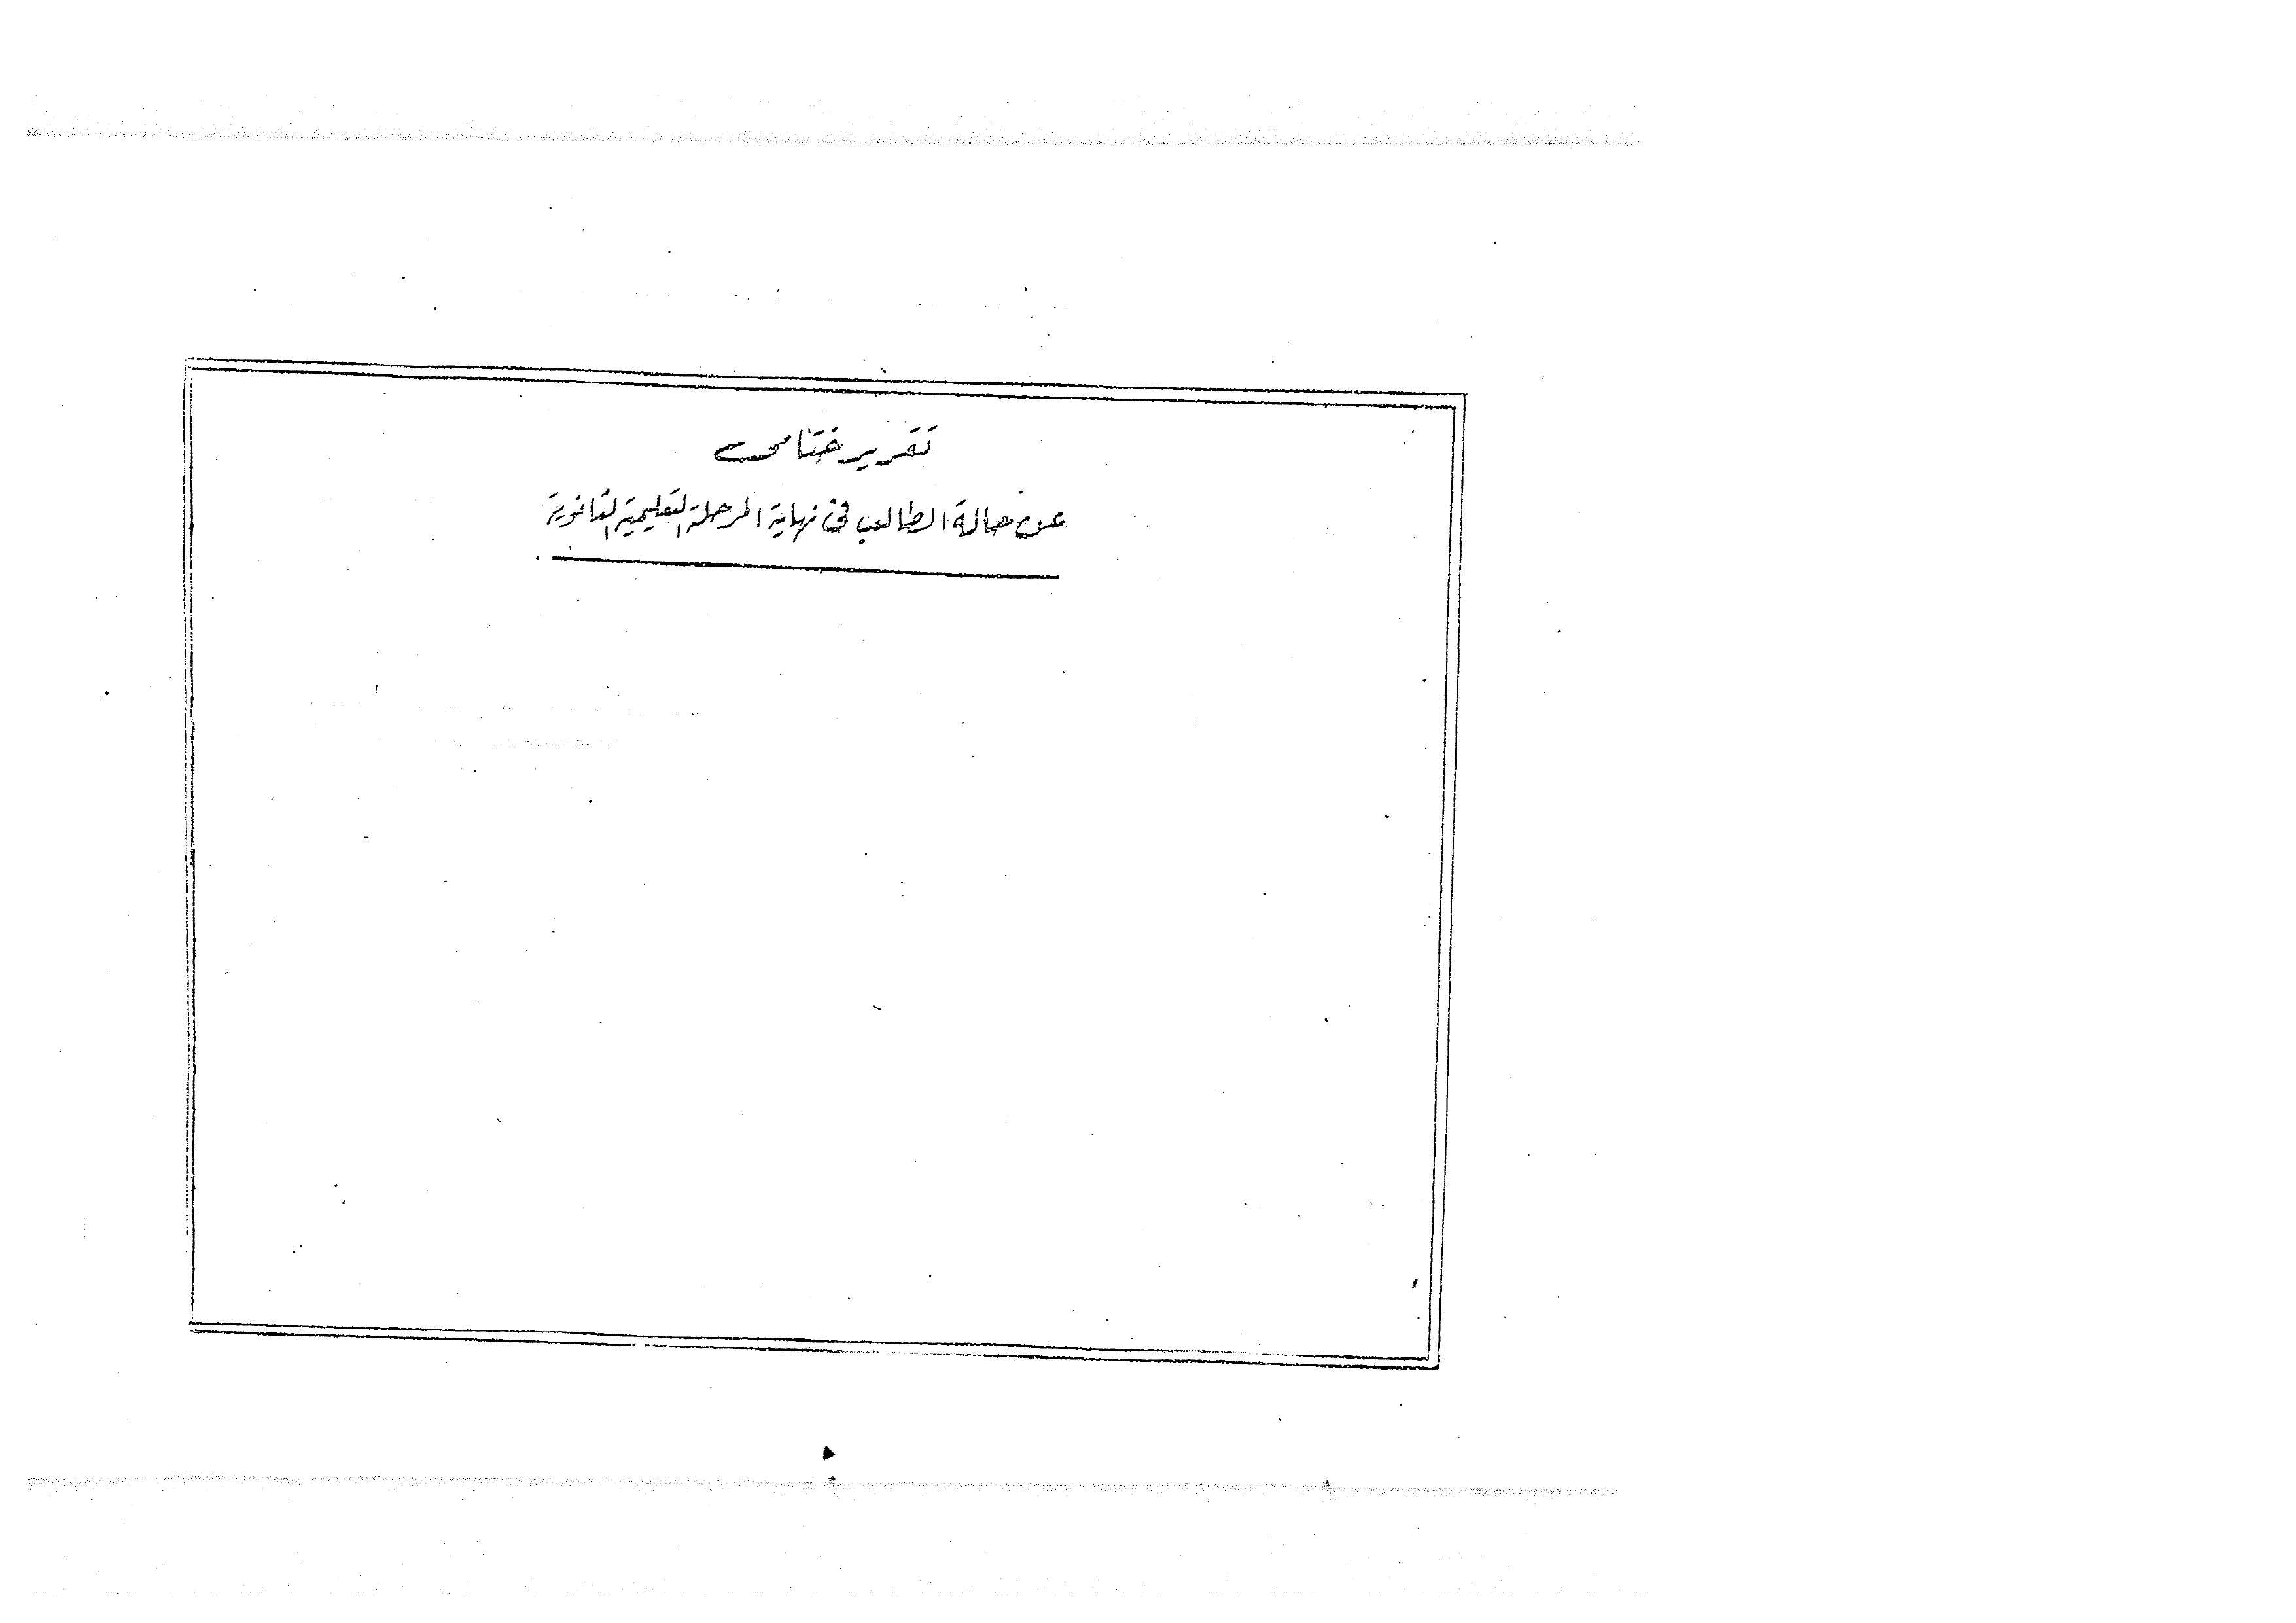 تقرير ختامى
عن حالة الطالب فى نهاية المرحلة التعليمية الثانوية